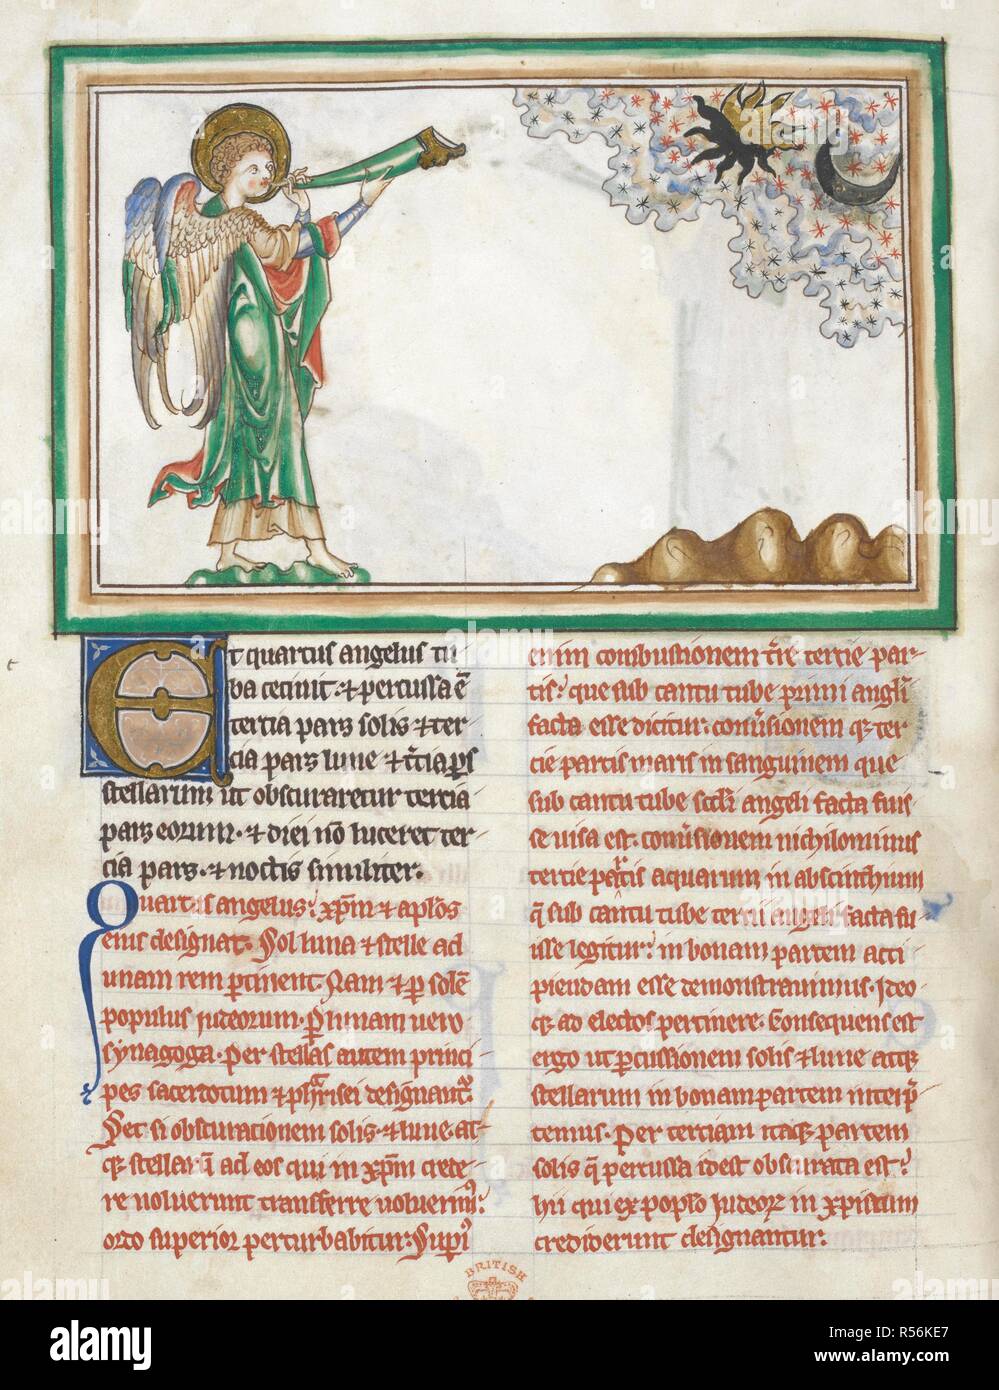 Et quartus angelus tu-
ba cecinit· ⁊ percussa ē
tercia pars solis ⁊ ter-
cia pars lune ⁊ t̄cia ps
stellarum ut obscuraretur tercia
pars eorum· ⁊ diei nō luceret ter-
cia pars· ⁊ noctis similiter·
Quartus angelus: xp̄m ⁊ aplōs
eius designat· Sol luna ⁊ stelle ad
unam rem ꝑtinent· Nam ⁊ ꝑ solē
populus iudeorum· ꝑ lunam uero
synagoga· Per stellas autem princi-
pes sacerdotum ⁊ pharisei designant̄·
Set si obscurationem solis· ⁊ lune· at-
qꝫ stellarū ad eos qui in xp̄m crede-
re noluerunt transferre uoluerimꝰ:
ordo superior perturbabitur: Supiꝰ
enim combustionem t̄re tercie par-
tis: que sub cantu tube primi angli
facta esse dicitur· conūsionem qꝫ ter-
cie partis maris in sanguinem que
sub cantu tube scdi angeli facta fuis-
se uisa est· conūsionem nichilominus
tercie partis aquarum in abscinthium
q̄ sub cantu tube tercii angeli facta fu-
isse legitur: in bonam partem acci-
piendam esse demonstrauimus· Ideo-
qꝫ ad electos pertinere· Consequens est
ergo ut ꝑcussionem solis ⁊ lune atqꝫ
stellarum in bonam partem interp̄-
temus· Per terciam itaqꝫ partem
solis q̄ percussa idest obscurata est:
hii qui ex poplo iudeoꝝ in xpistum
crediderunt designantur:
BRITISH
alamy
Image ID: R56KE7
www.alamy.com